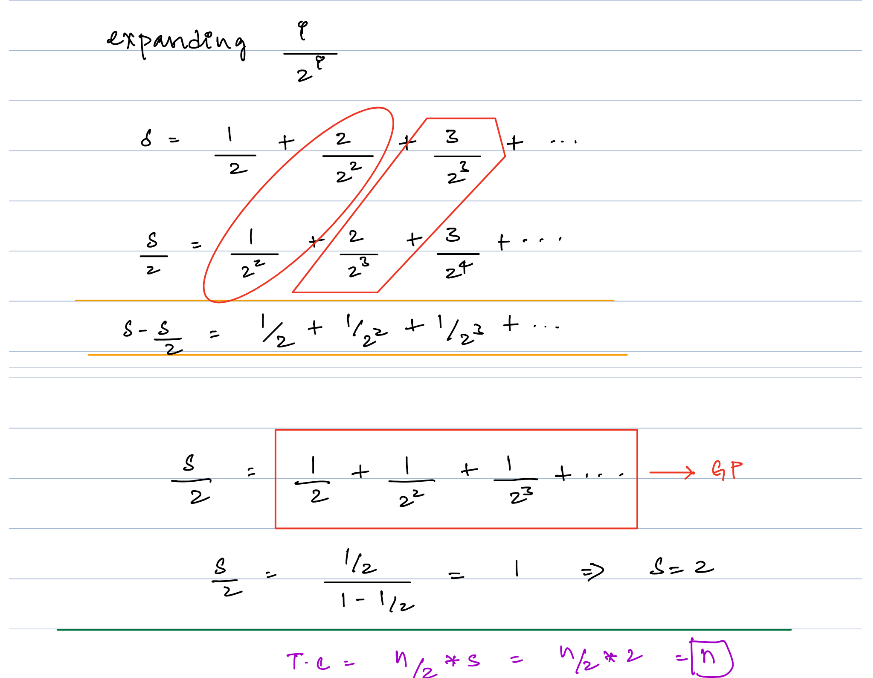 expanding i/2^i
S = 1/2 + 2/2^2 + 3/2^3 + ...
S/2 = 1/2^2 + 2/2^3 + 3/2^4 + ...
S - S/2 = 1/2 + 1/2^2 + 1/2^3 + ...
S/2 = 1/2 + 1/2^2 + 1/2^3 + ... → GP
S/2 = (1/2)/(1 - 1/2) = 1 ⇒ S = 2
T.C = n/2 * S = n/2 * 2 = n